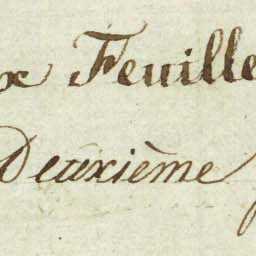 x Feuille
Deuxième